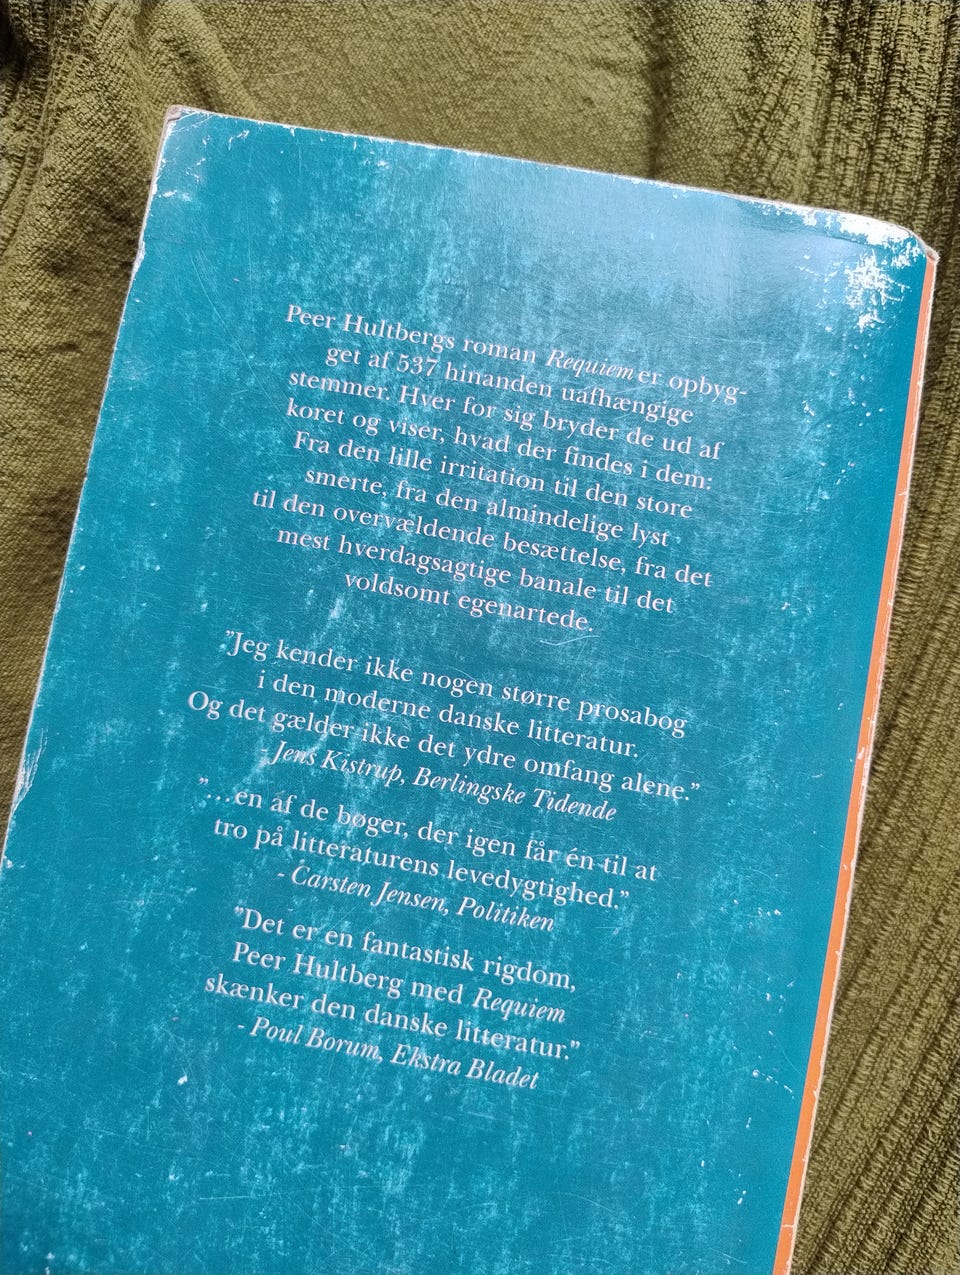 Peer Hultbergs roman Requiem er opbyg-
get af 537 hinanden uafhængige
stemmer. Hver for sig bryder de ud af
koret og viser, hvad der findes i dem:
Fra den lille irritation til den store
smerte, fra den almindelige lyst
til den overvældende besættelse, fra det
mest hverdagsagtige banale til det
voldsomt egenartede.
"Jeg kender ikke nogen større prosabog
i den moderne danske litteratur.
Og det gælder ikke det ydre omfang alene."
- Jens Kistrup, Berlingske Tidende
"...en af de bøger, der igen får én til at
tro på litteraturens levedygtighed."
- Carsten Jensen, Politiken
"Det er en fantastisk rigdom,
Peer Hultberg med Requiem
skænker den danske litteratur."
- Poul Borum, Ekstra Bladet